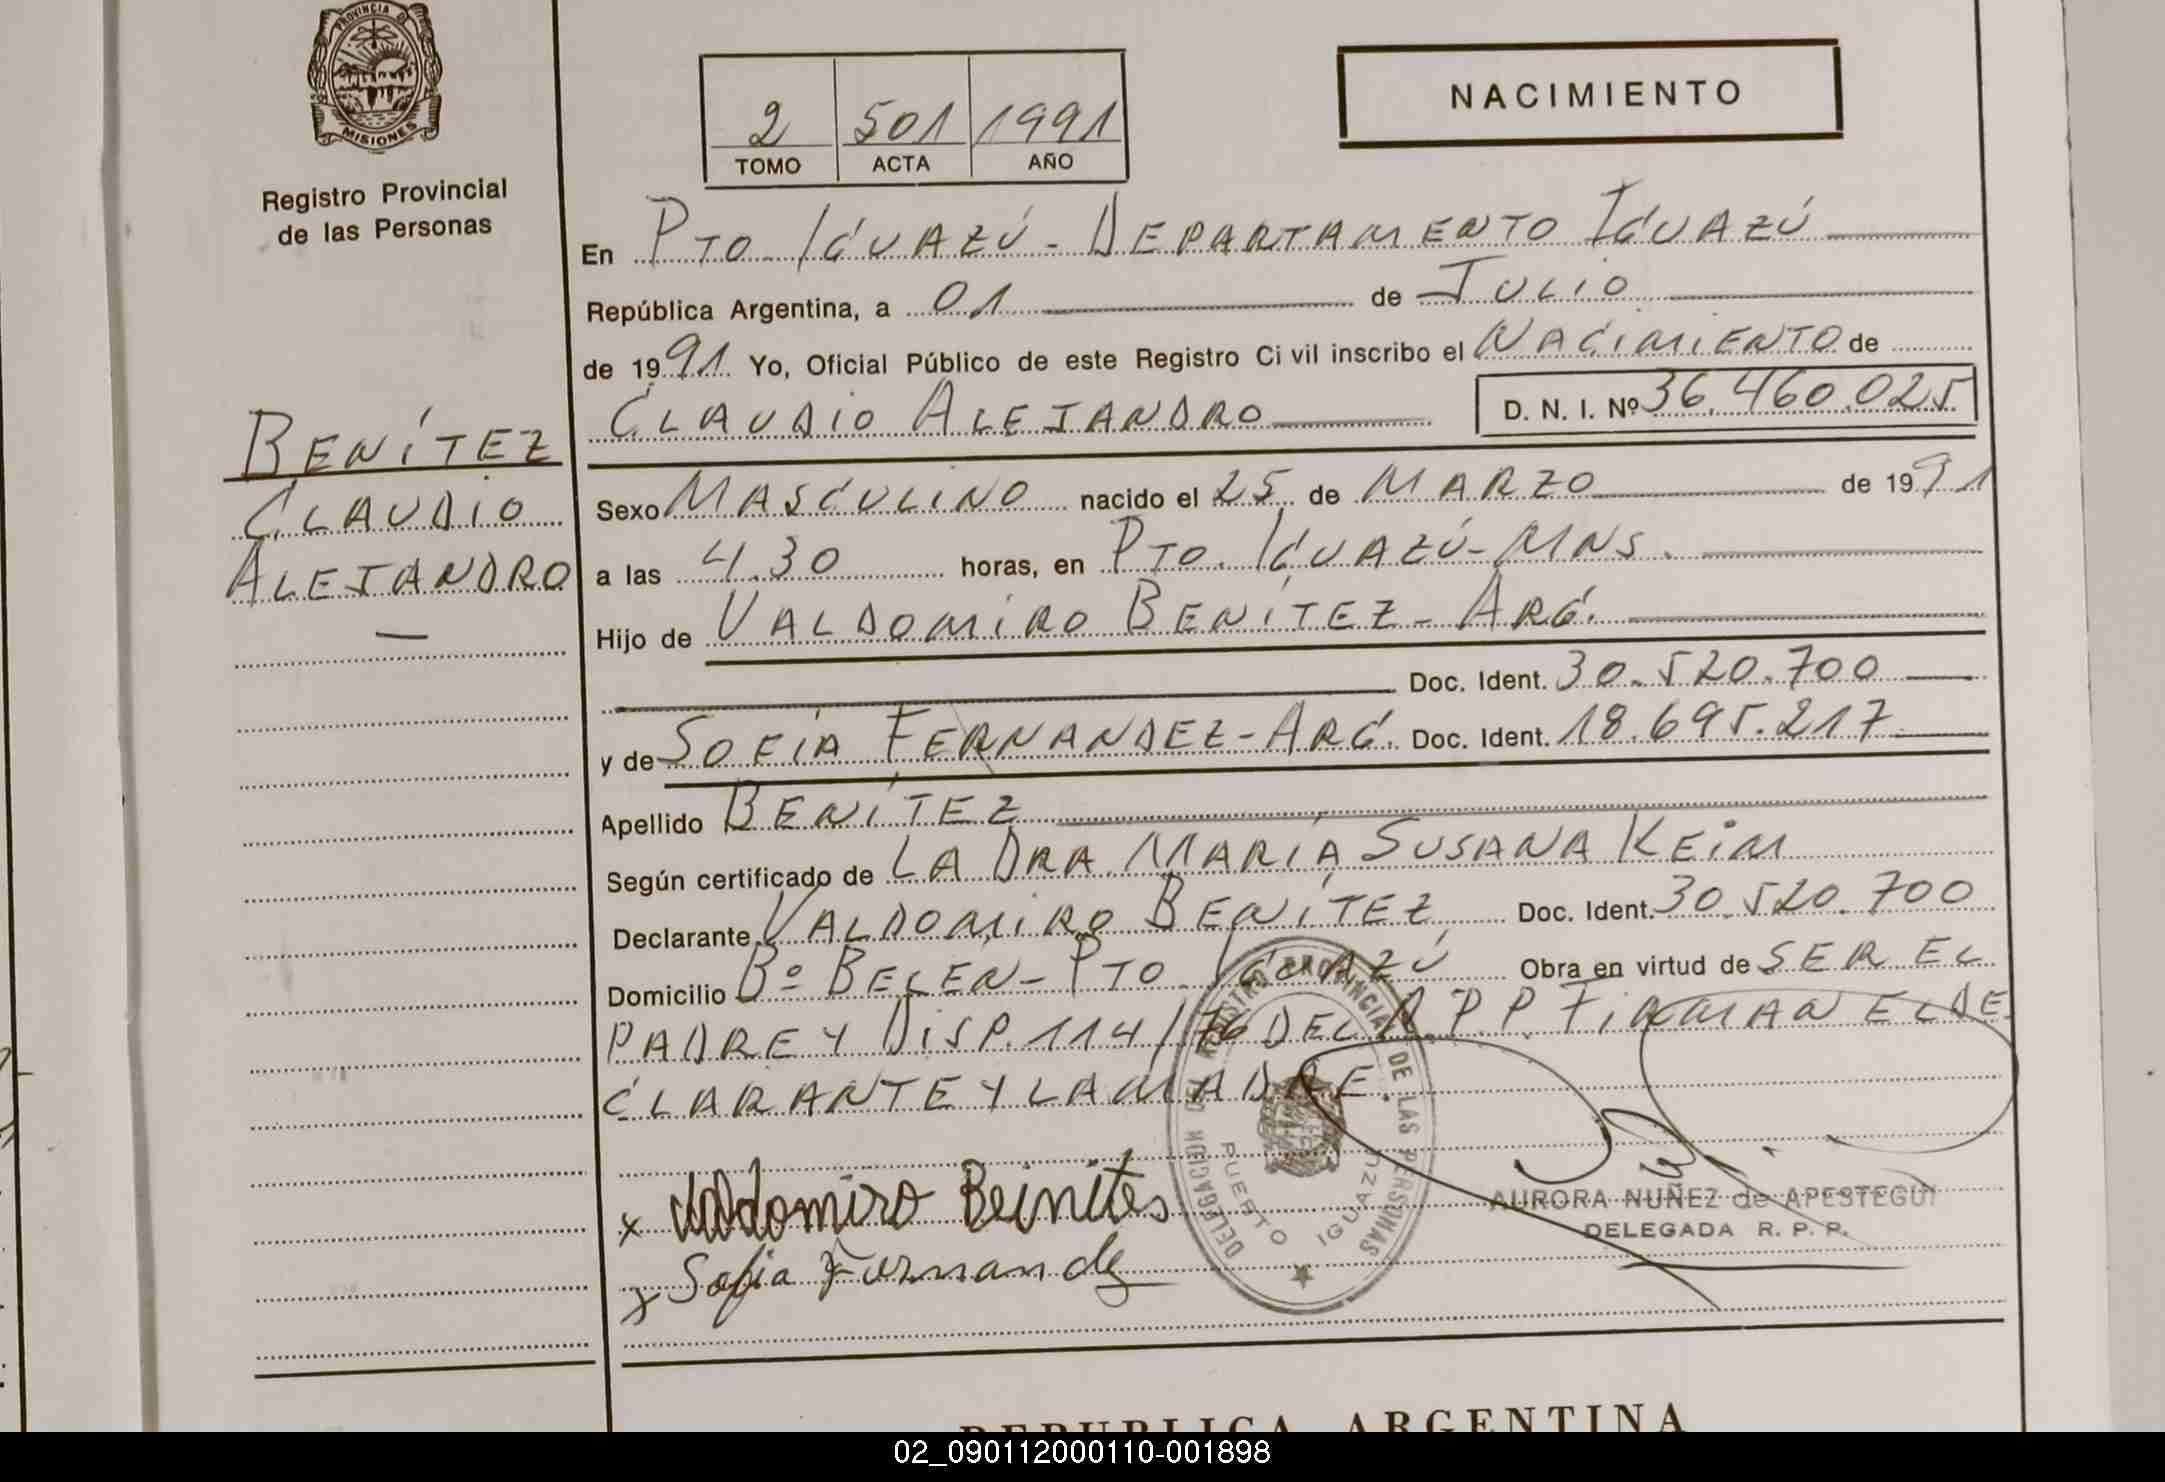 PROVINCIA DE
MISIONES
Registro Provincial
de las Personas
BENÍTEZ
CLAUDIO
ALEJANDRO
2 501 1991
TOMO ACTA AÑO
NACIMIENTO
En PTO IGUAZÚ - DEPARTAMENTO IGUAZÚ
República Argentina, a 01 de JULIO
de 1991 Yo, Oficial Público de este Registro Ci vil inscribo el NACIMIENTO de
CLAUDIO ALEJANDRO D. N. I. Nº 36.460.025
Sexo MASCULINO nacido el 25 de MARZO de 1991
a las 4.30 horas, en PTO. IGUAZÚ - MNS.
Hijo de VALDOMIRO BENÍTEZ - ARG.
Doc. Ident. 30.520.700
y de SOFÍA FERNANDEZ - ARG. Doc. Ident. 18.695.217
Apellido BENÍTEZ
Según certificado de LA DRA MARÍA SUSANA KEIM
Declarante VALDOMIRO BENÍTEZ Doc. Ident. 30.520.700
Domicilio Bº BELÉN - PTO IGUAZÚ Obra en virtud de SER EL
PADRE Y DISP. 114/76 DEL R.P.P. FIRMAN EL DE
CLARANTE Y LA MADRE.
x Valdomiro Beinites
x Sofia Fernandez
DELEGACION DEL REGISTRO PROVINCIAL DE LAS PERSONAS
PUERTO IGUAZU
AURORA NUÑEZ de APESTEGUI
DELEGADA R. P. P.
REPUBLICA ARGENTINA
02_090112000110-001898